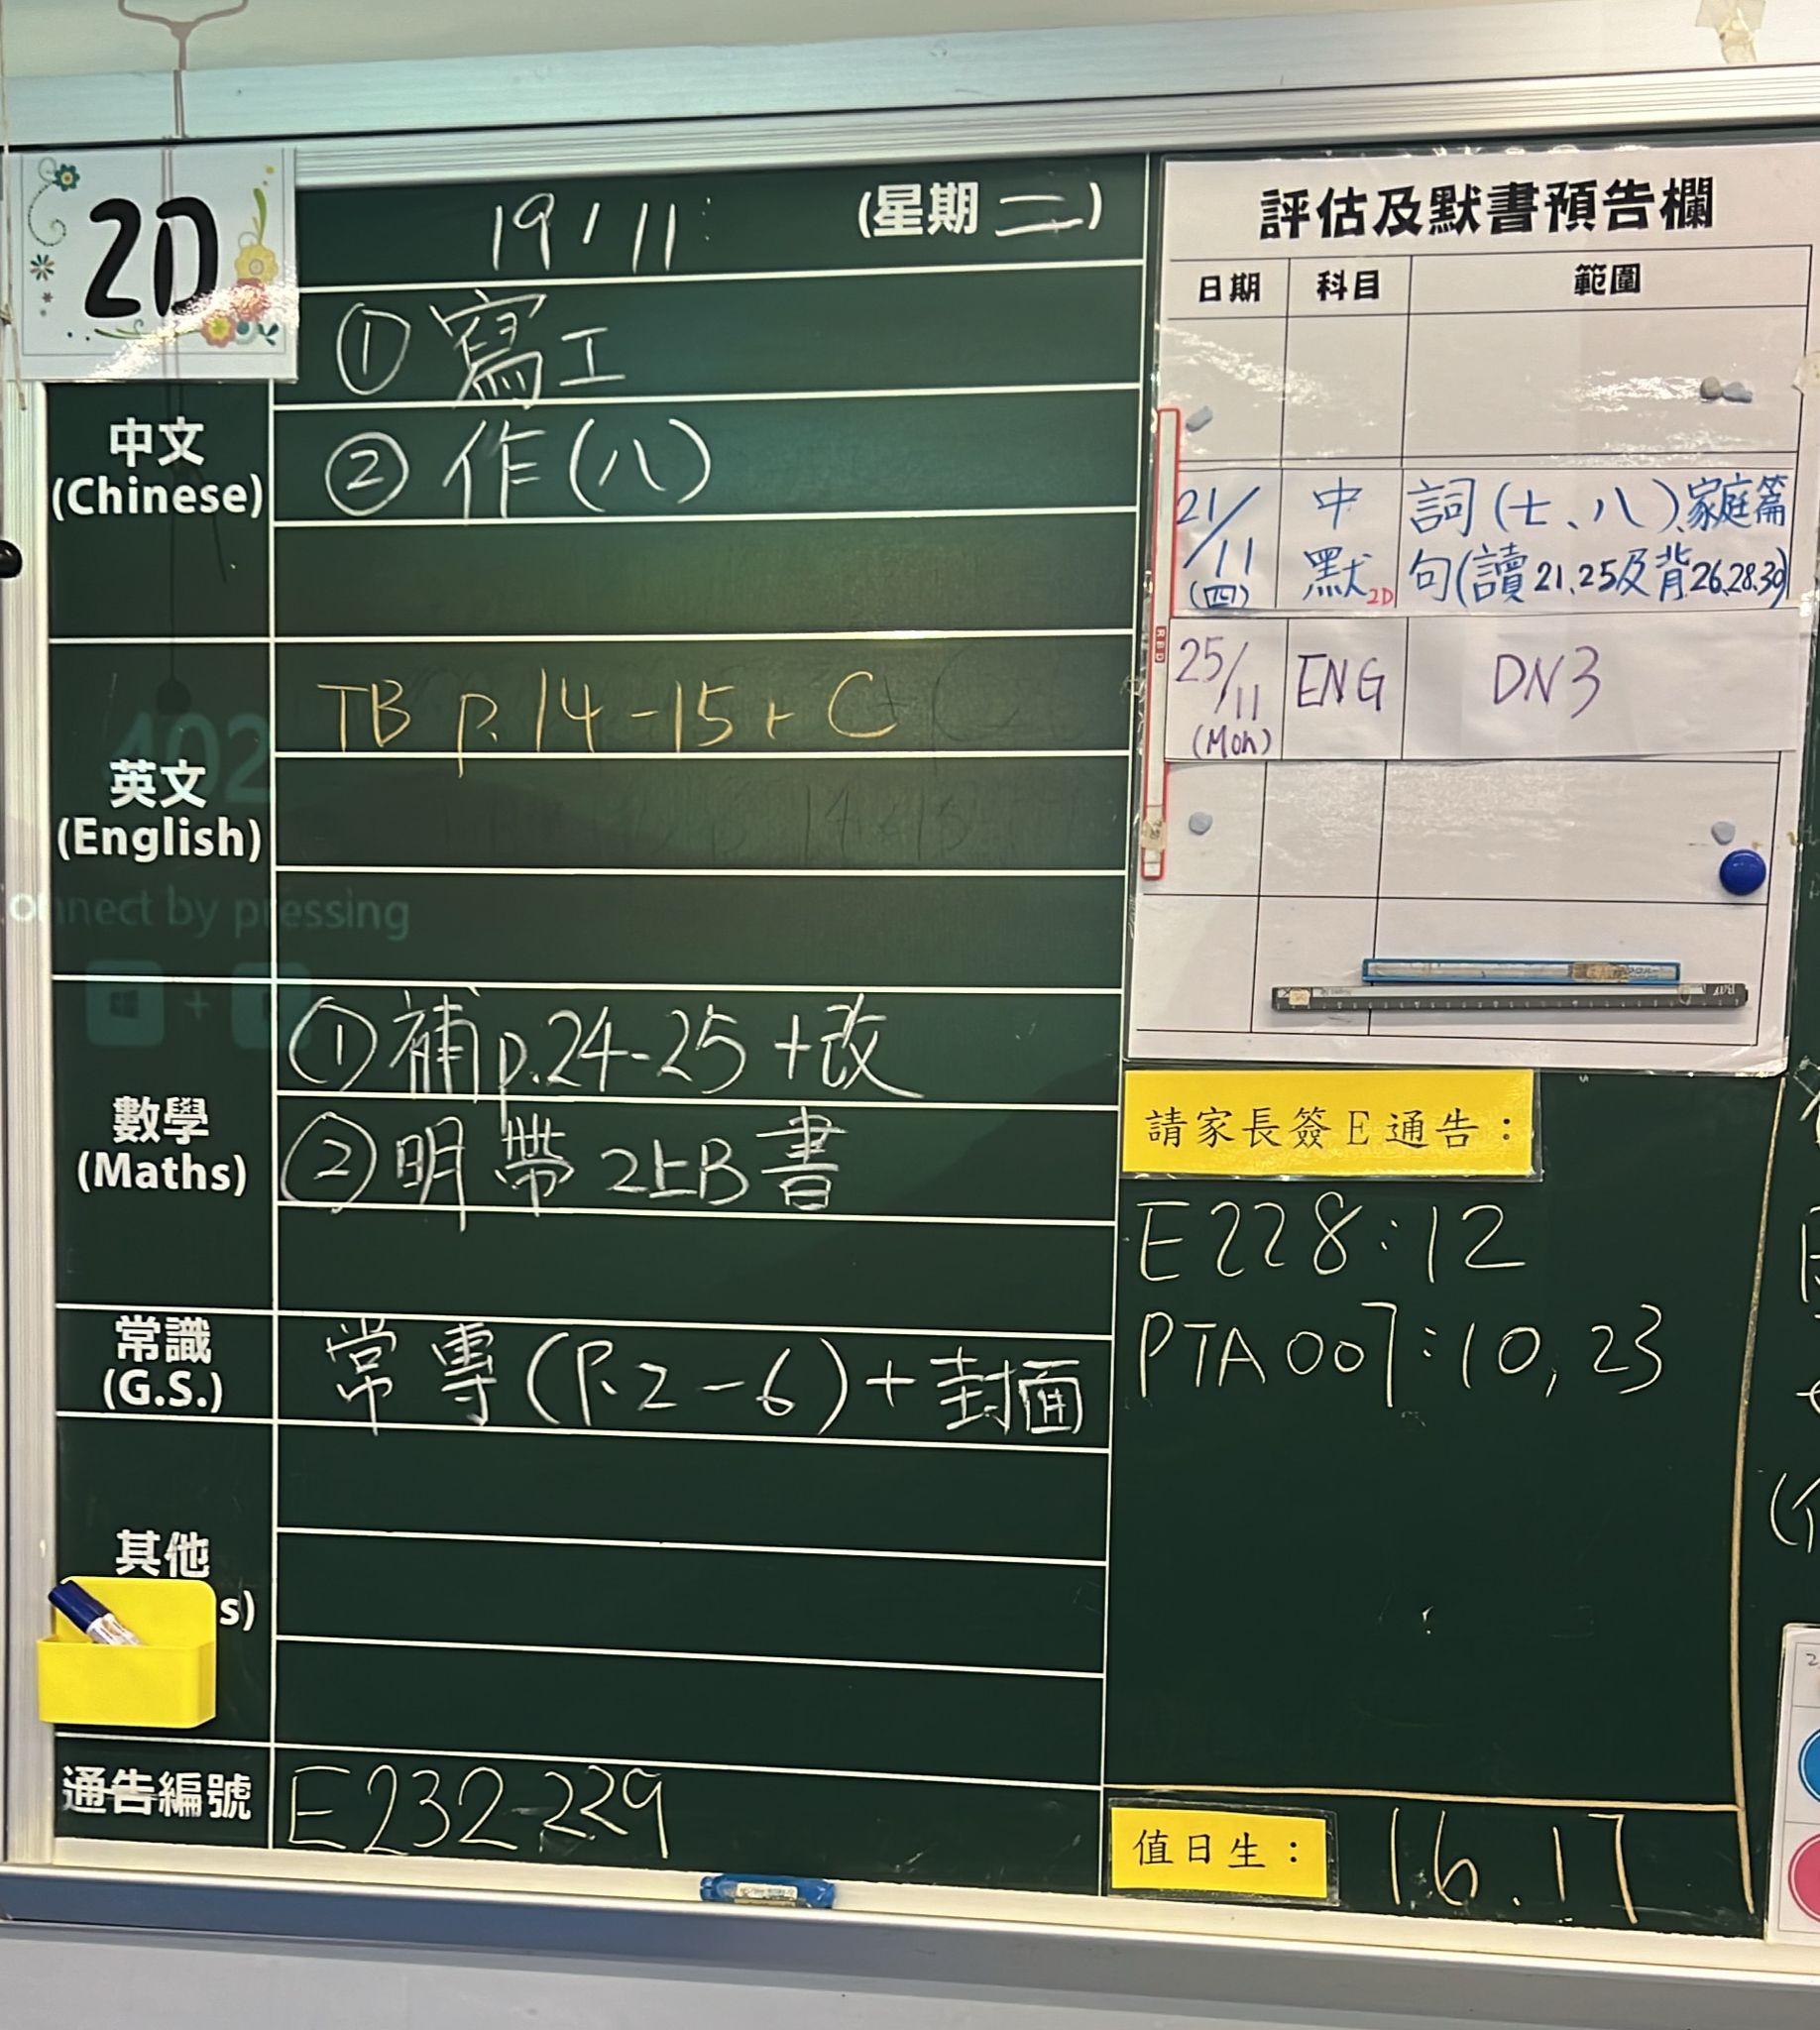 2D
19/11
(星期二)
① 寫工
中文
(Chinese)
② 作(八)
TB p.14-15+C
英文
(English)
onnect by pressing
數學
(Maths)
① 補p.24-25+改
② 明帶2上B書
常識
(G.S.)
常專(P.2-6)+封面
其他
s)
通告編號
E232-239
評估及默書預告欄
日期 科目 範圍
21/11 (四) 中默 2D 詞(七、八)、家庭篇
句(讀21、25及背26、28、30)
25/11 (Mon) ENG DN3
請家長簽E通告：
E228:12
PTA007:10,23
值日生： 16.17